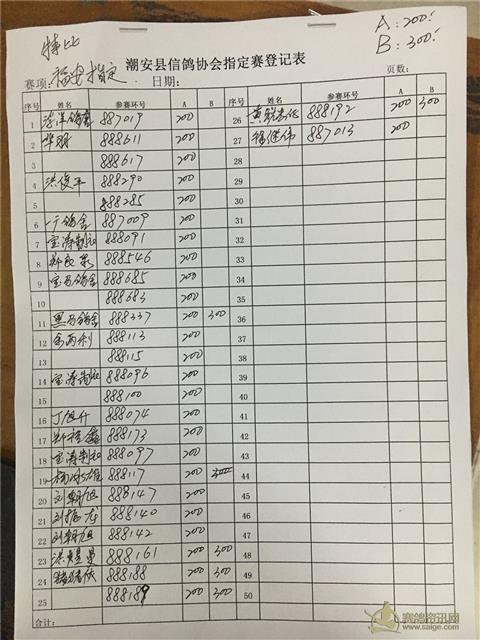 A:200!
B:300!
特比
潮安县信鸽协会指定赛登记表
赛项: 福安指定 日期: 页数:
序号 姓名 参赛环号 A B 序号 姓名 参赛环号 A B
1 887019 200 26 888192 200 300
2 华弼 888611 200 27 徐继伟 887013 200
3 888617 200 28
4 洪俊平 888290 200 29
5 888285 200 30
6 一广鸽舍 887009 200 31
7 宝涛制衣 888091 200 32
8 888546 200 33
9 宝马鸽舍 888685 200 34
10 888683 200 35
11 黑马鸽舍 888337 200 300 36
12 888113 200 37
13 888115 200 38
14 宝涛制衣 888096 200 39
15 888100 200 40
16 丁旭升 888074 200 41
17 888173 200 42
18 宝涛制衣 888097 200 43
19 888117 200 44
20 刘朝旭 888147 200 45
21 刘振龙 888140 200 46
22 刘朝旭 888142 200 47
23 888161 200 300 48
24 888188 200 300 49
25 888189 200 300 50
合计:
赛鸽资讯网
www.saige.com